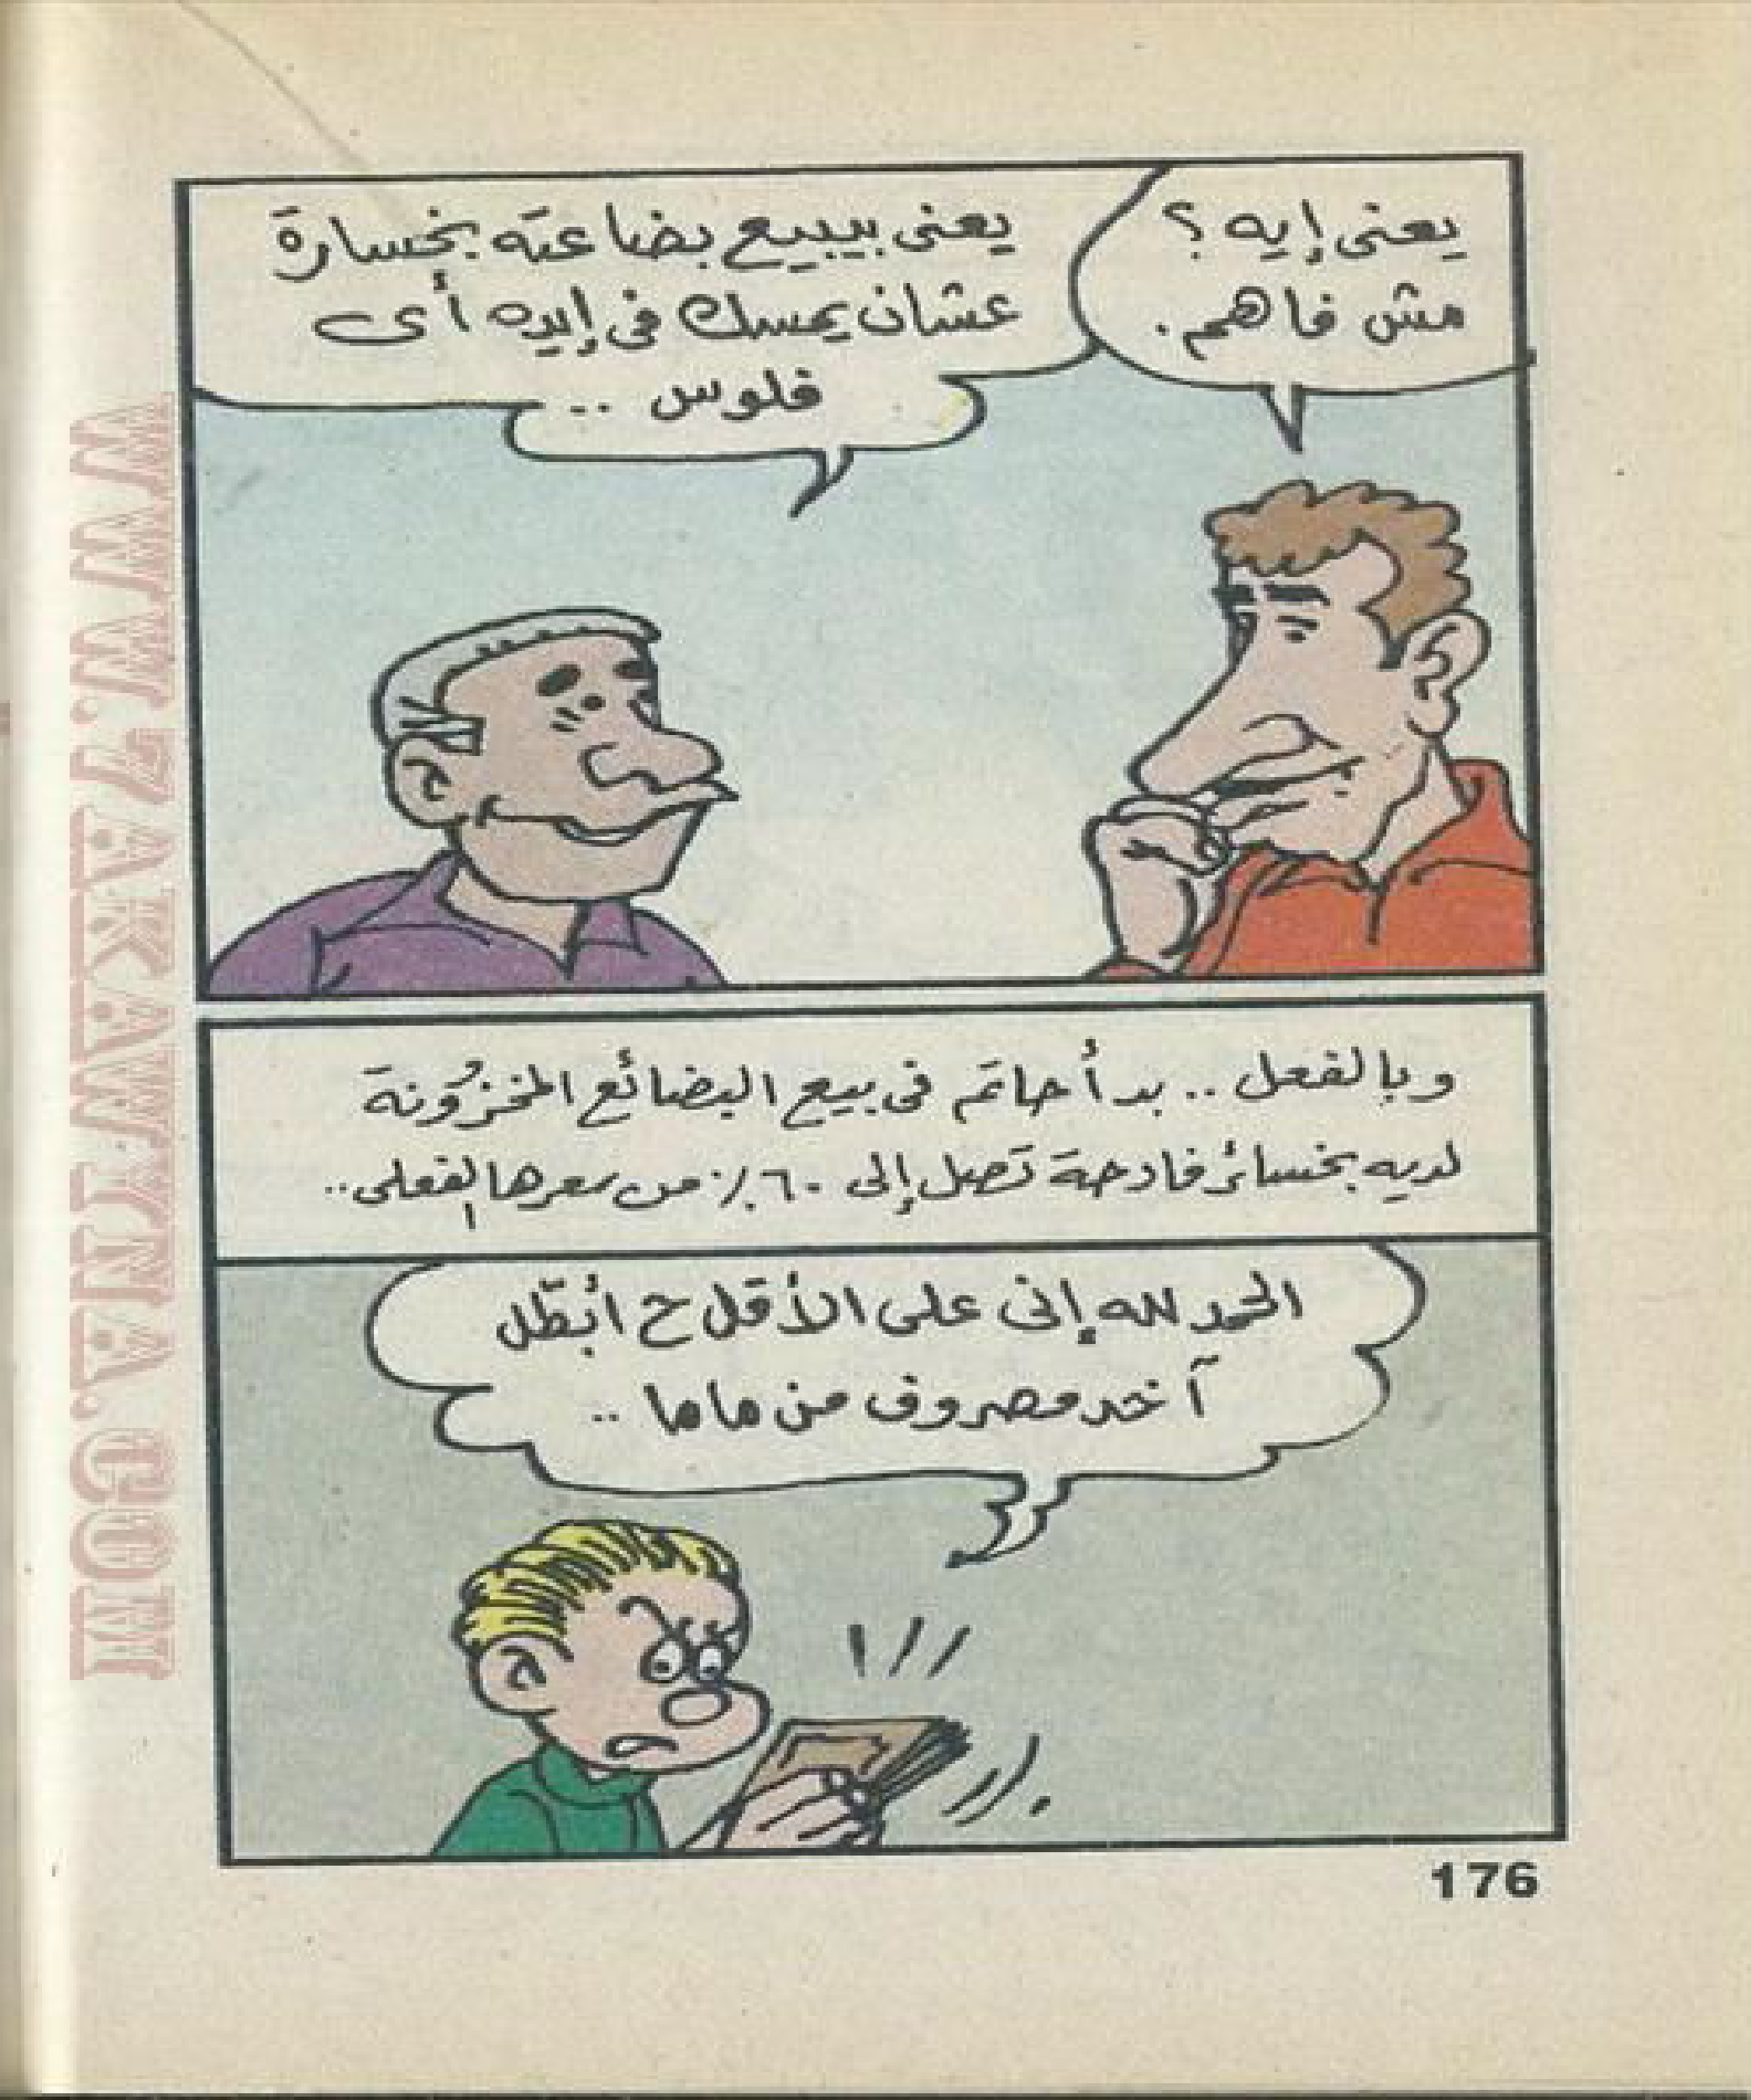 يعنى إيه ؟
مش فاهم .
يعنى بيبيع بضاعته بخسارة
عشان يمسك فى إيده أى
فلوس ..
وبالفعل .. بدأ حاتم فى بيع البضائع المخزُونة
لديه بخسائر فادحة تصل إلى ٦٠٪ من سعرها الفعلى ..
الحمد لله إنى على الأقل ح أبطّل
آخد مصروف من ماما ..
176
WWW.ZAKAWINNA.COM